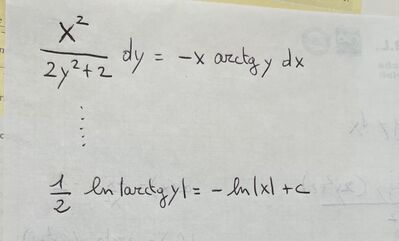 x²/(2y²+2) dy = -x arctg y dx
⋮
1/2 ln|arctg y| = -ln|x| + c